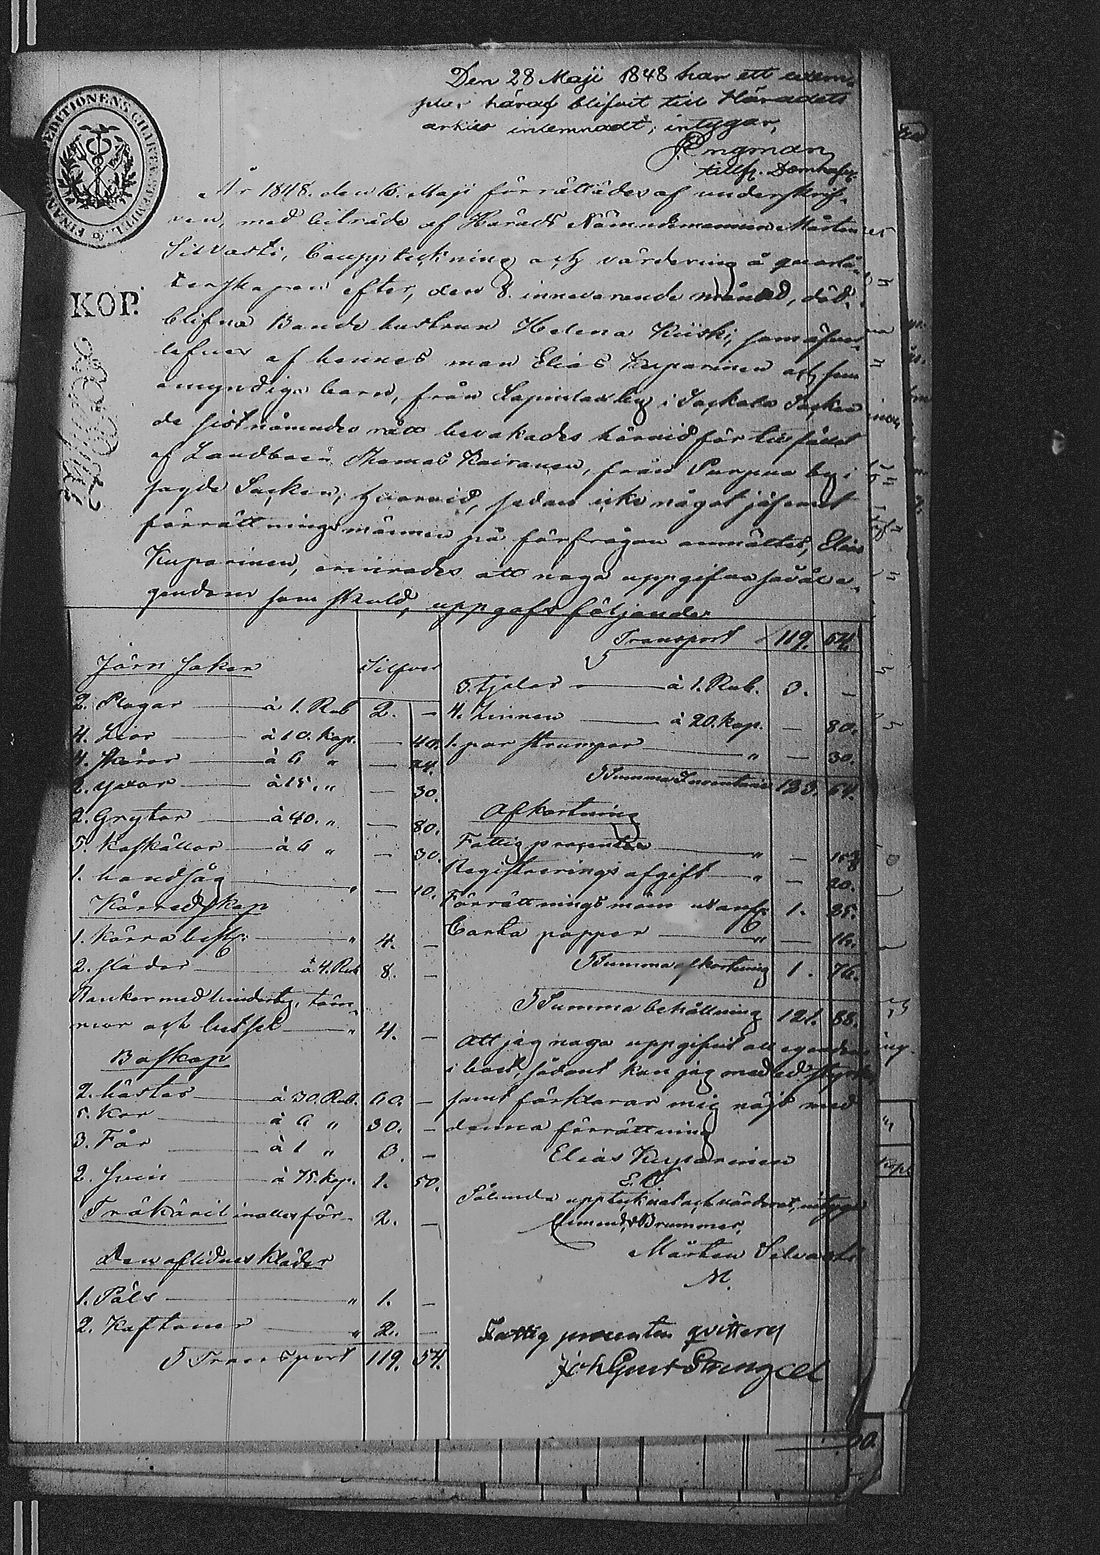 Den 28 Maji 1848 har ett exem-
plar häraf blifvit till Häradets
arkiv inlemnadt; intygar,
Engman
tillf. Domhafv.
FINANS EXPEDITIONENS CHARTÆ
KOP.
År 1848 den 16 Maji förrättades af underskrif-
ven, med biträde af Härads Nämndemannen Mårten
Silvasti, bouppteckning och värdering å quarlå-
tenskapen efter, den 8 innevarande månad, död-
blifne Bonde hustrun Helena Kiiski, som öfver-
lefves af hennes man Elias Kuparinen och fem
omyndiga barn, från Lapinlax by i Jackala Socken
de sistnämndes rätt bevakades härvid för tillfället
af Landbon Thomas Kairanen, från Purpua by i
sagde Socken; hvarvid, sedan icke något jäf emot
förrättningsmännen på förfrågan anmältes, Elias
Kuparinen, erinrades att noga uppgifva såväl e-
gendom som skuld, uppgafs följande:
Silfver
Järn saker
2. Plogar à 1. Rub 2. –
4. Liar à 10. kop. – 40.
4. Skäror à 6 " – 24.
2. Yxor à 15. " – 30.
2. Grytor à 40. " – 80.
5. à 6 " – 30.
1. handsåg " – 10.
Körredskap
1. Kärra " 4. –
2. slädar à 4. Rub 8. –
Rankor med tindertyg, töm-
mar och " 4. –
Boskap
2. hästar à 30. Rub. 60. –
5. Kor à 6 " 30. –
3. Får à 1 " 3. –
2. Svin à 75. kop. 1. 50.
Träkäril inalles för 2. –
Den aflidnes kläder
1. Päls " 1. –
2. Kaftaner " 2. –
Transport 119. 54.
Transport 119. 54.
3. Kjolar à 1. Rub. 3. –
4. Linnen à 20. kop. – 80.
1. par strumpor " – 30.
Summa Inventarie 123. 64.
Afkortning
Fattig procenten " –
Registrerings afgift " – 20.
Förrättnings män 1. 25.
Carta papper " – 15.
Summa afkortning 1. 76.
Summa behållning 121. 88.
Att jag noga uppgifvit all egendom
i boet, sådant kan jag med ed styrka
samt förklarar mig nöjd med
denna förrättning
Elias Kuparinen
E. K.
Sålunda upptecknat och värderat, intyga
Edmund Brummer,
Mårten Silvasti
M.
Fattig procenten qvitterad
Joh Gust Strengell